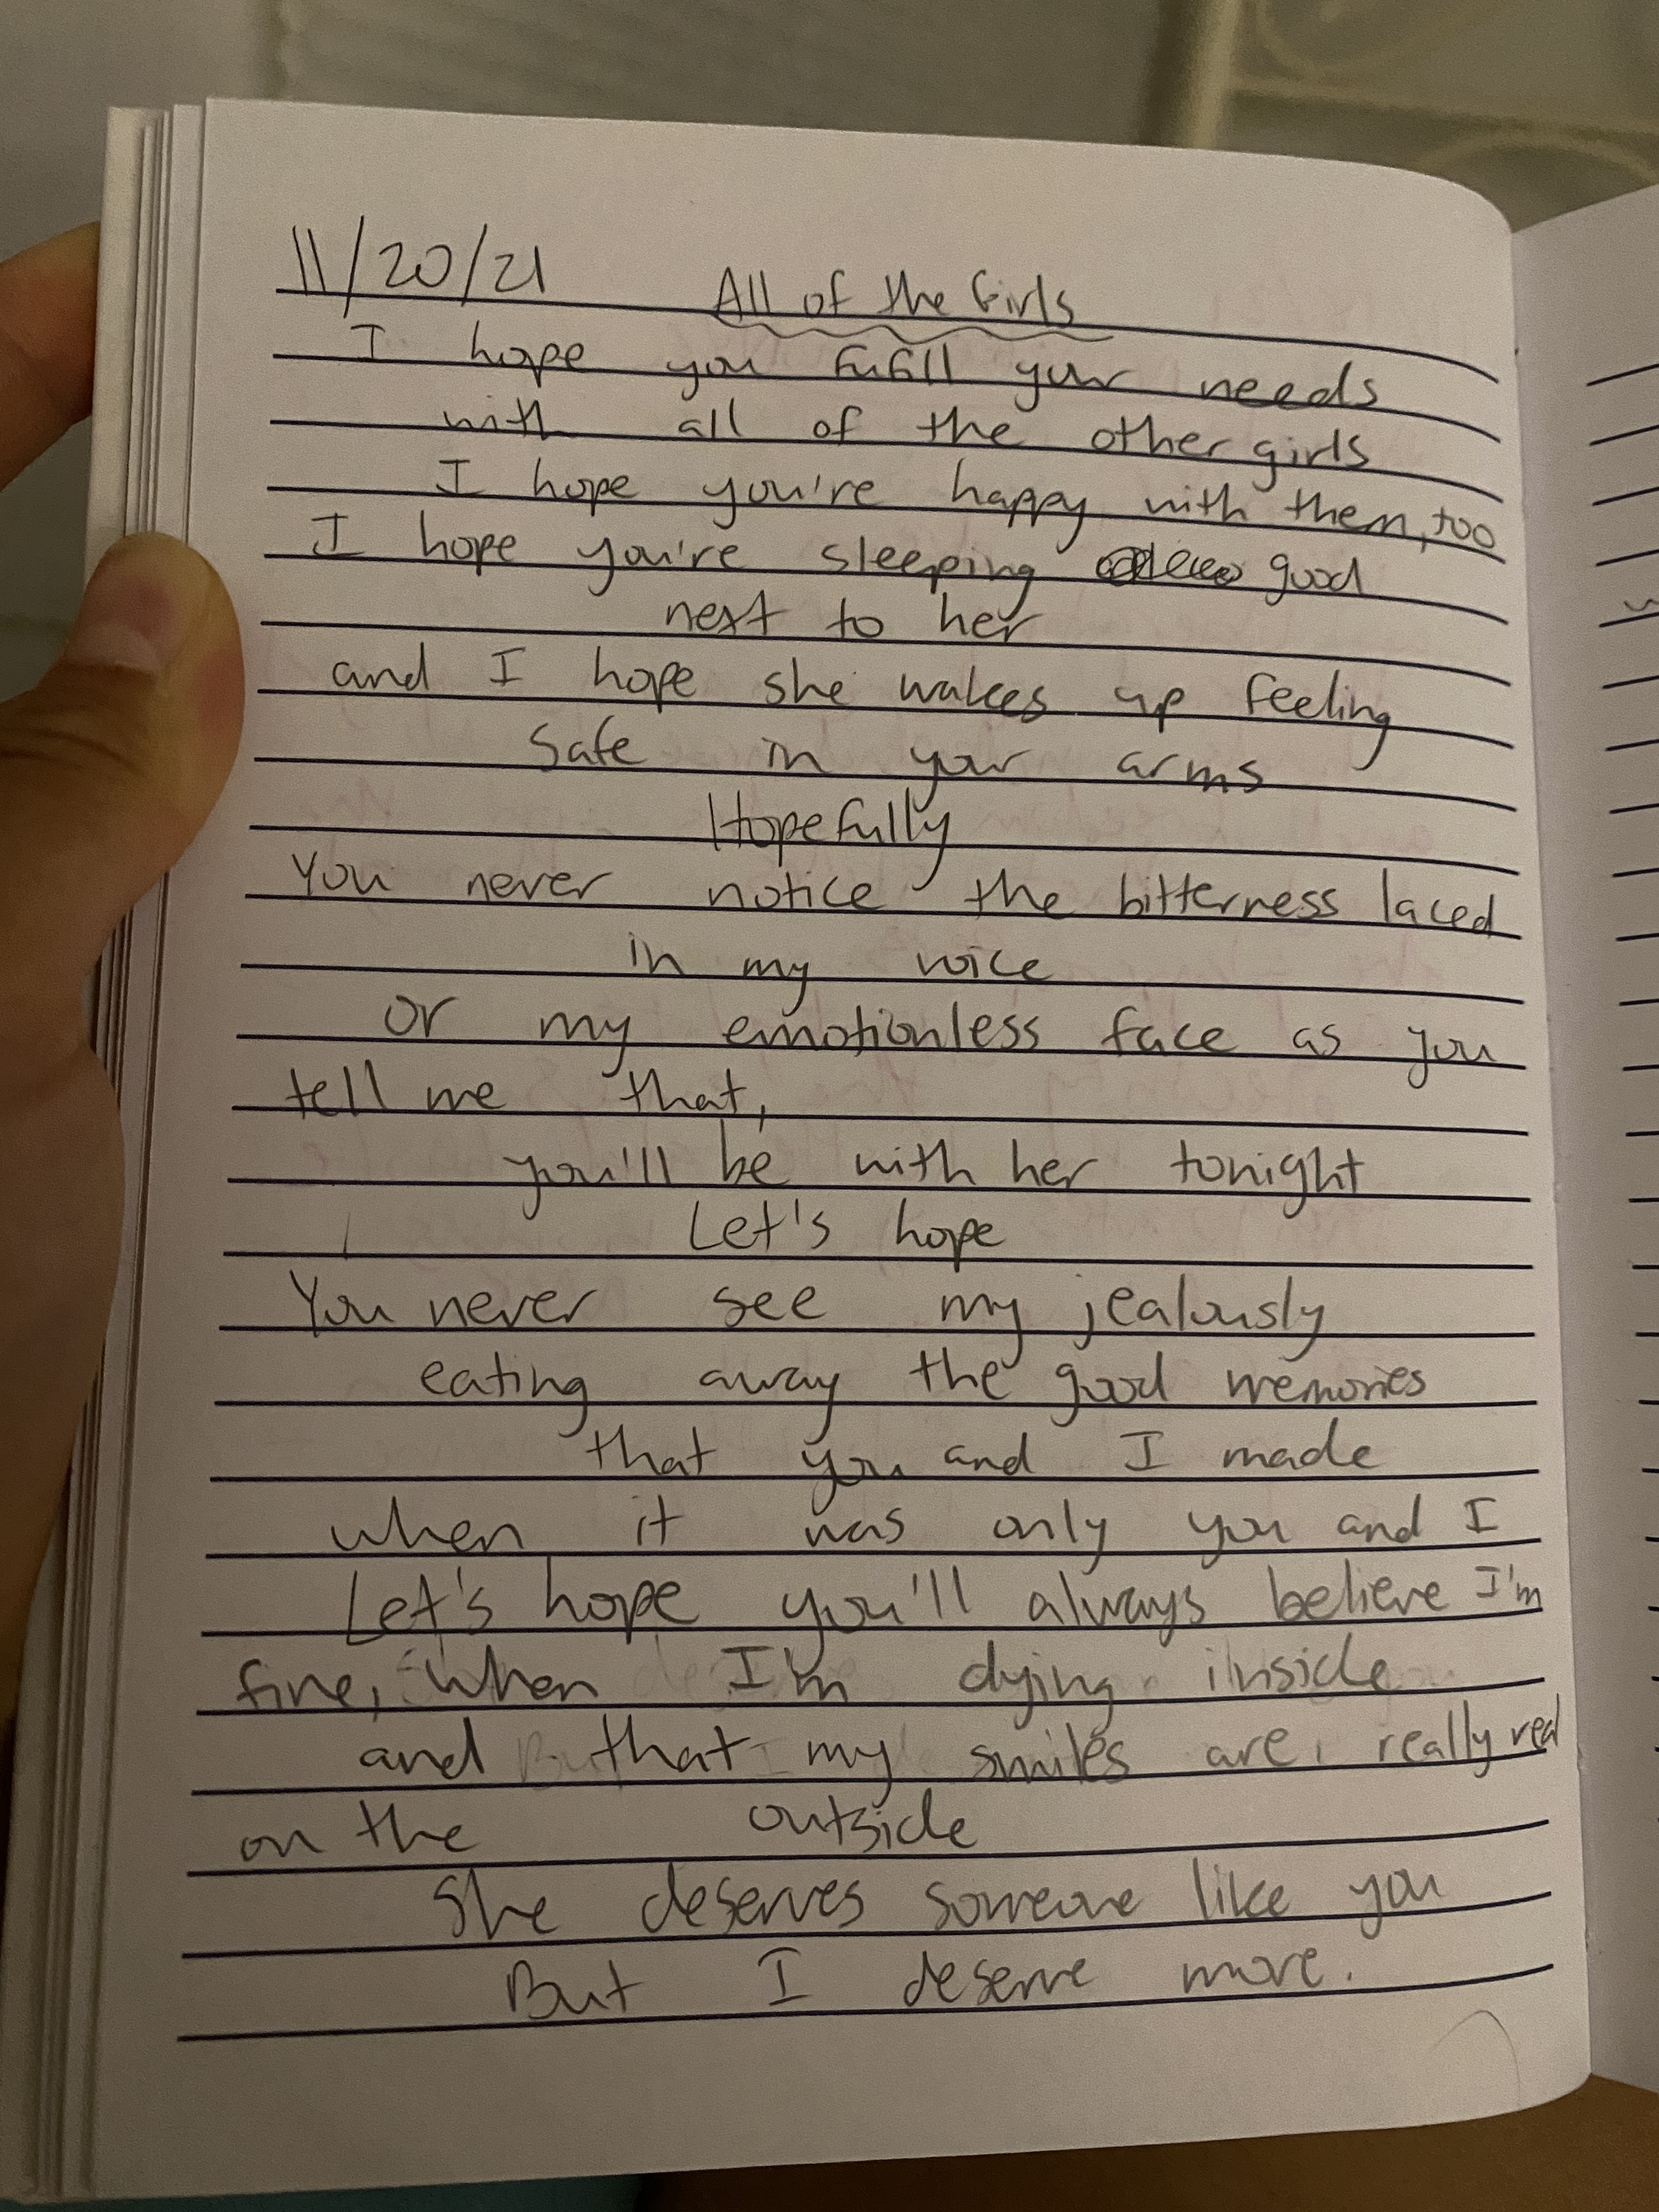 11/20/21 All of the Girls
I hope you fufill your needs
with all of the other girls
I hope you're happy with them, too
I hope you're sleeping good
next to her
and I hope she wakes up feeling
safe in your arms
Hopefully
You never notice the bitterness laced
in my voice
or my emotionless face as you
tell me that,
you'll be with her tonight
Let's hope
You never see my jealously
eating away the good memories
that you and I made
when it was only you and I
Let's hope you'll always believe I'm
fine, when I'm dying inside
and that my smiles are really real
on the outside
She deserves someone like you
But I deserve more.